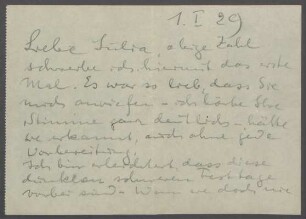 1. I 29
Liebe Sulva, obige Zahl
schreibe ich hiermit das erste
Mal. Es war so lieb, dass Sie
mich anriefen – ich hörte Ihre
Stimme ganz deutlich – hätte
sie erkannt, auch ohne jede
Vorbereitung.
Ich bin erleichtert, dass diese
dunklen schweren Festtage
vorbei sind – Wenn sie doch nie